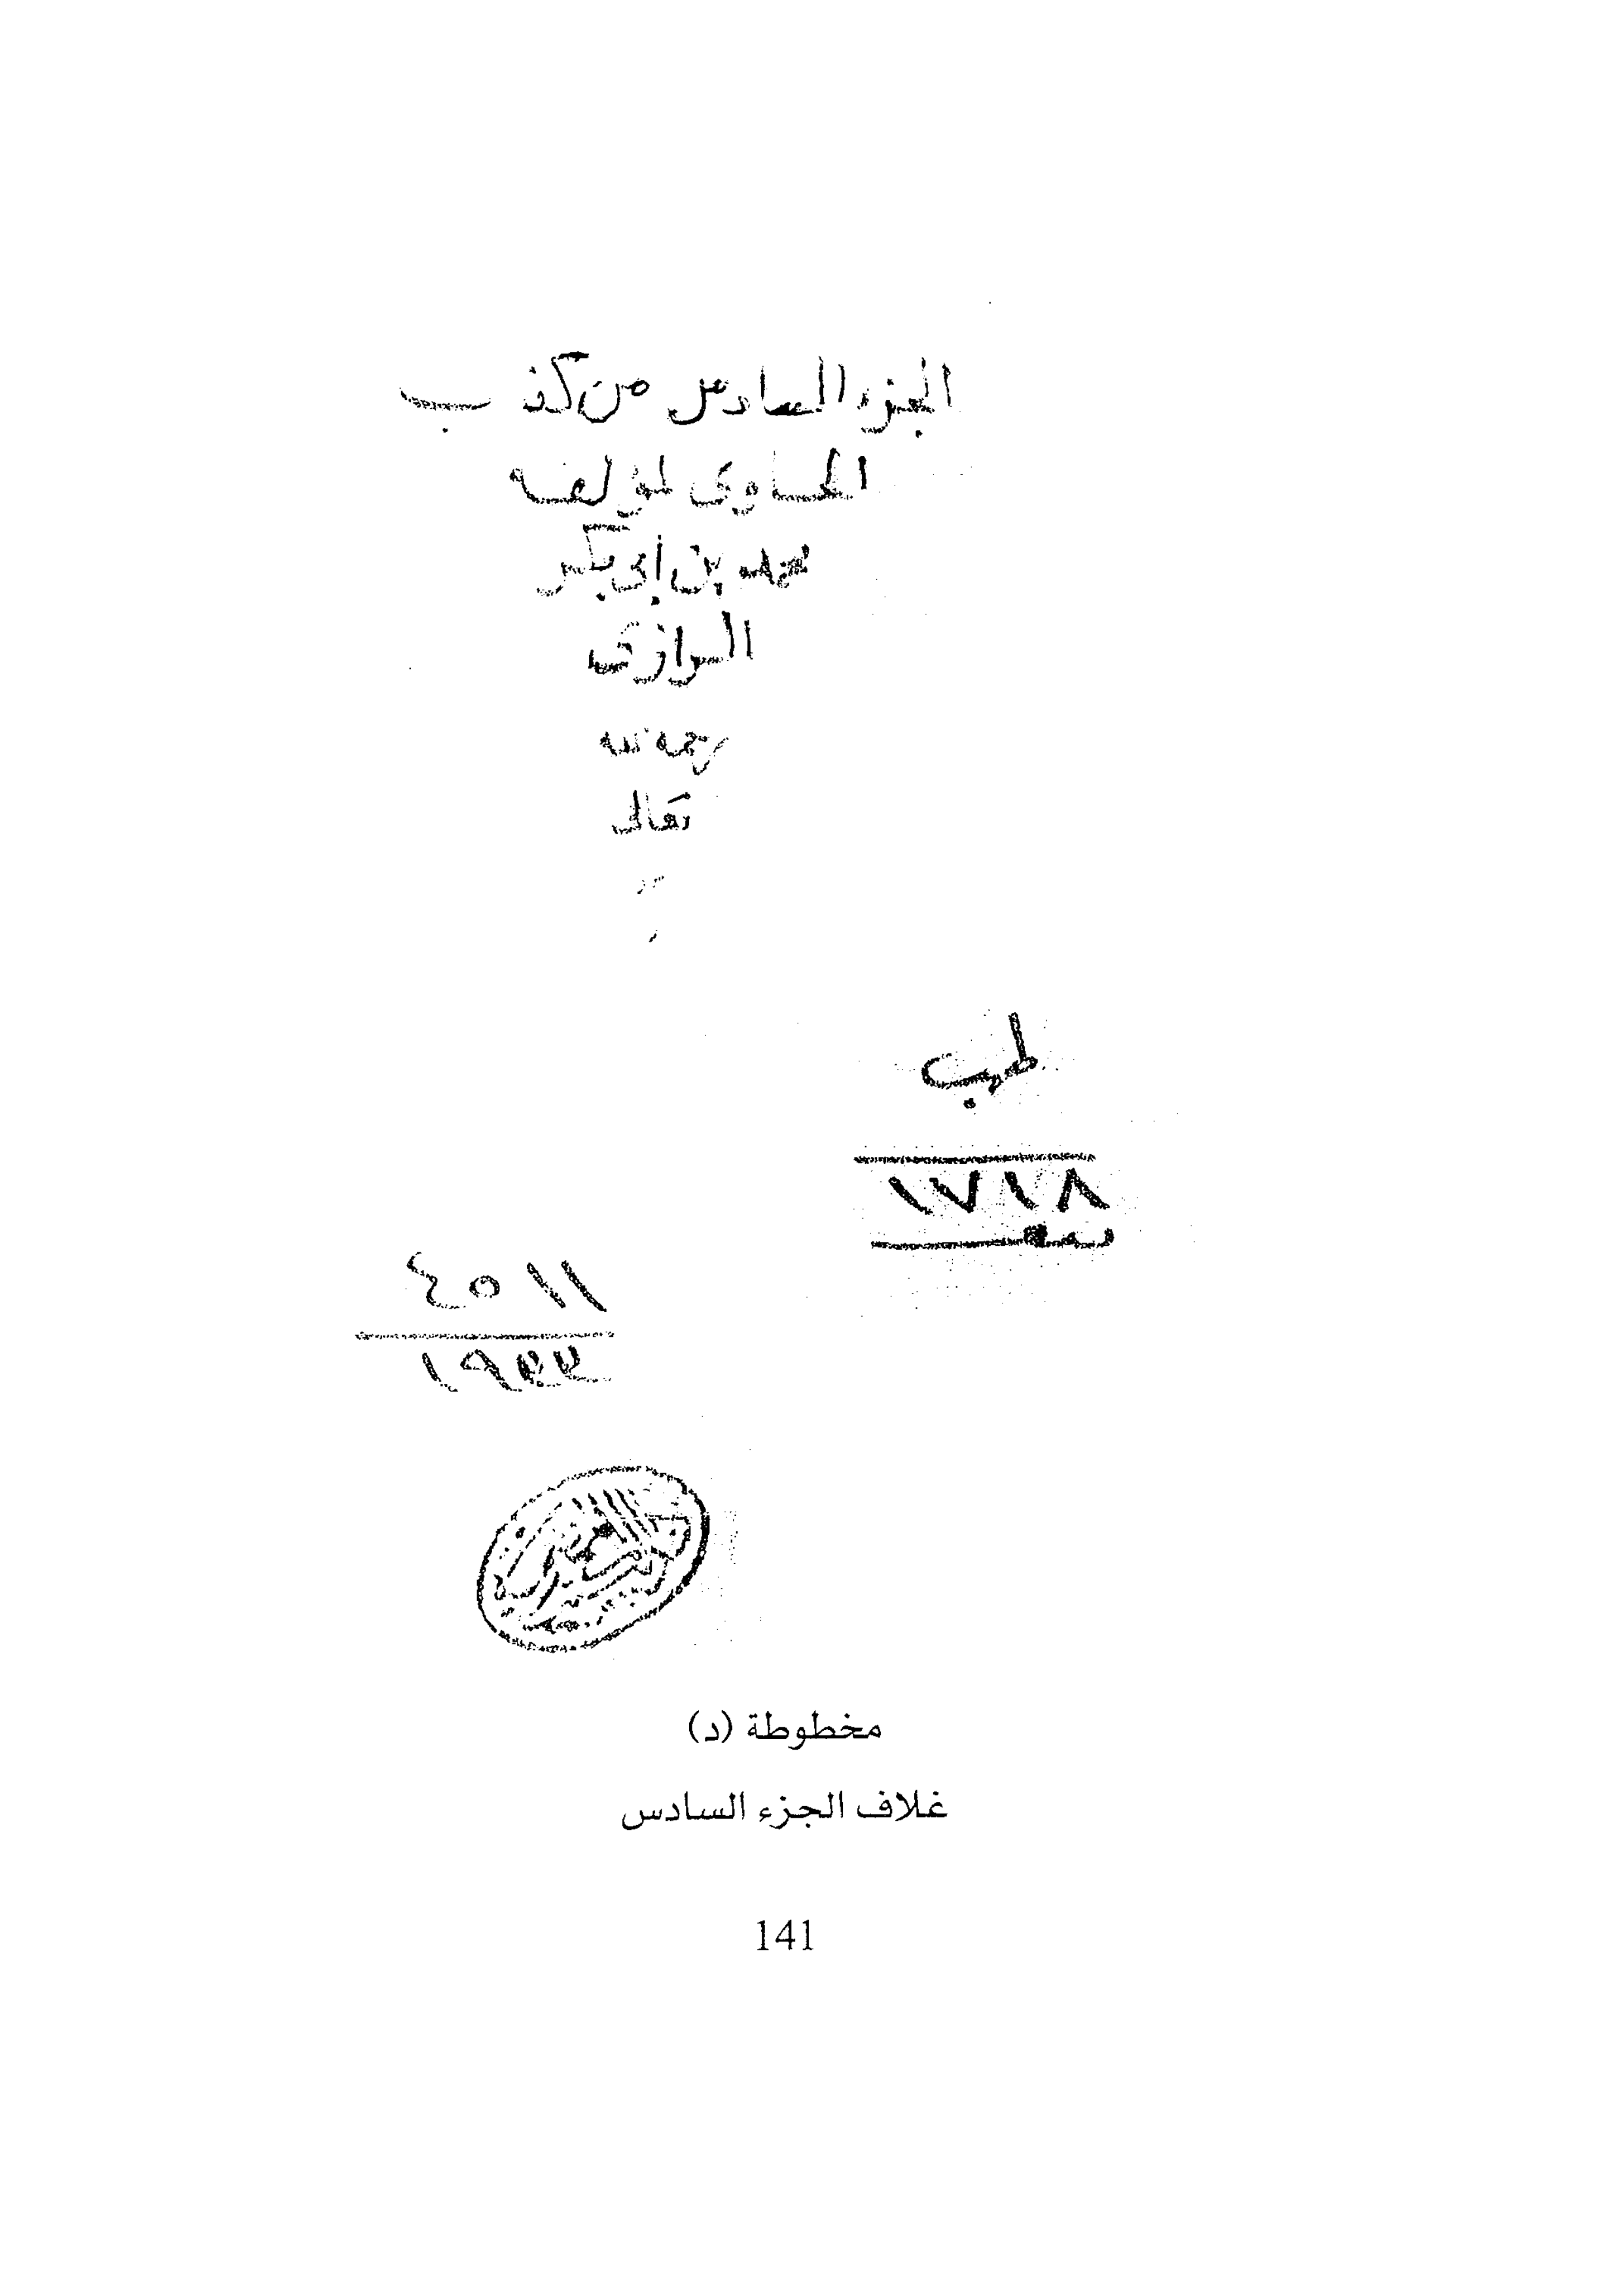 الجزء السادس من كتاب
الحاوى لمؤلفه
محمد بن ابى بكر
الرازى
رحمه الله
تعالى
طب
١٧١٨
٤٥١١
١٩٢٢
مخطوطة (د)
غلاف الجزء السادس
141